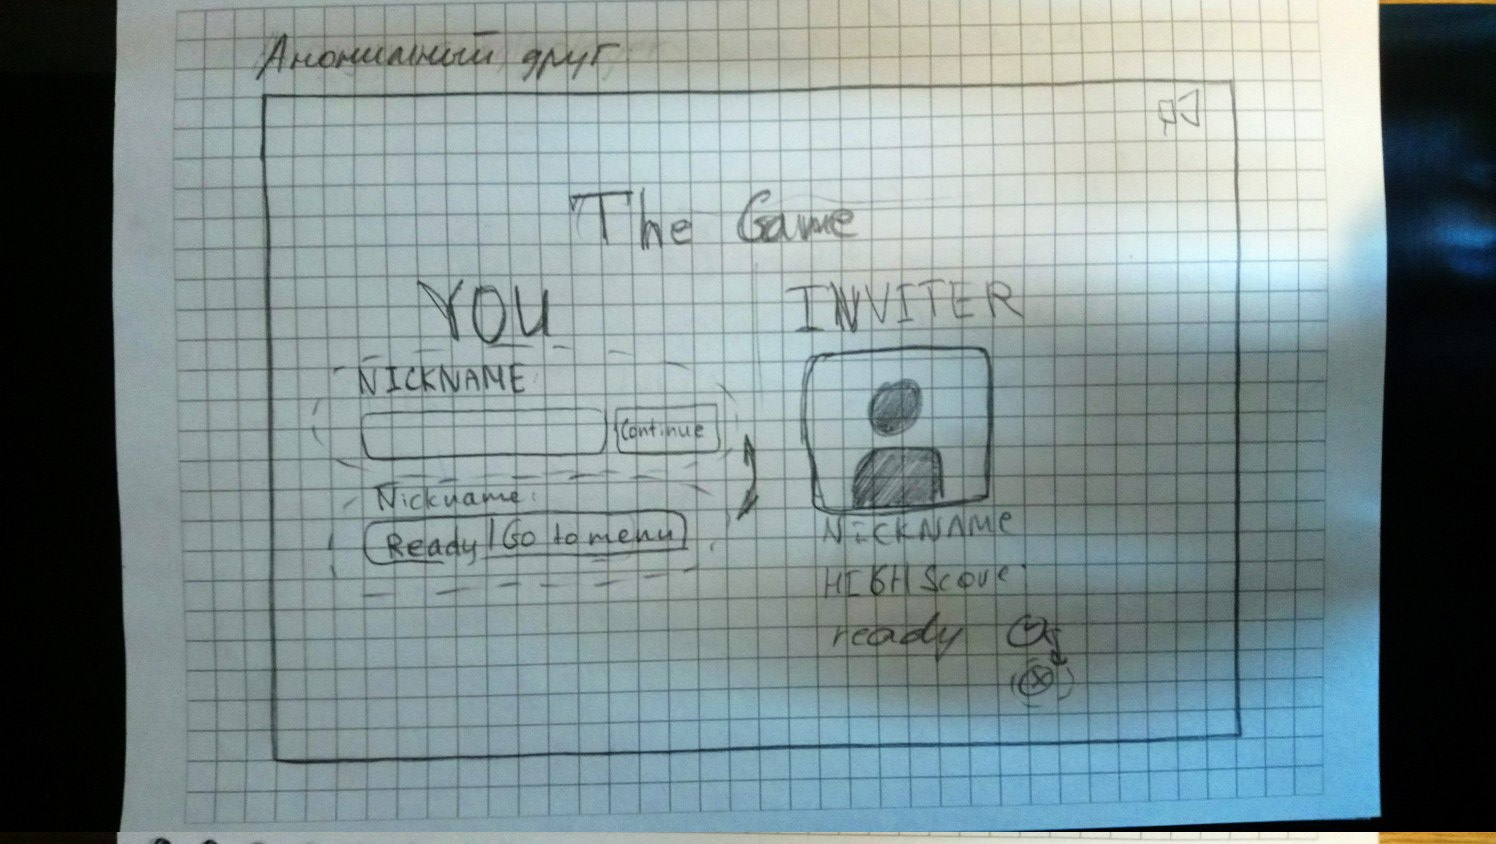 Анонимный друг
The Game
YOU
INVITER
NICKNAME
Continue
Nickname:
Ready / Go to menu
NICKNAME
HIGH Score
ready